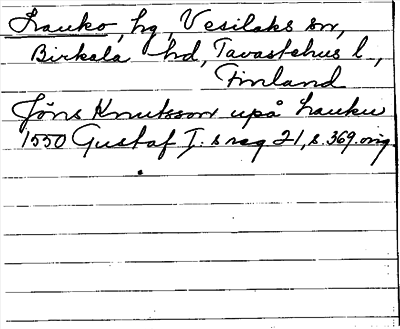 Lauko, hg, Vesilaks sn,
Birkala hd, Tavastehus l.,
Finland
Jöns Knutsson upå Lauku
1550 Gustaf I:s reg 21, s. 369. orig.